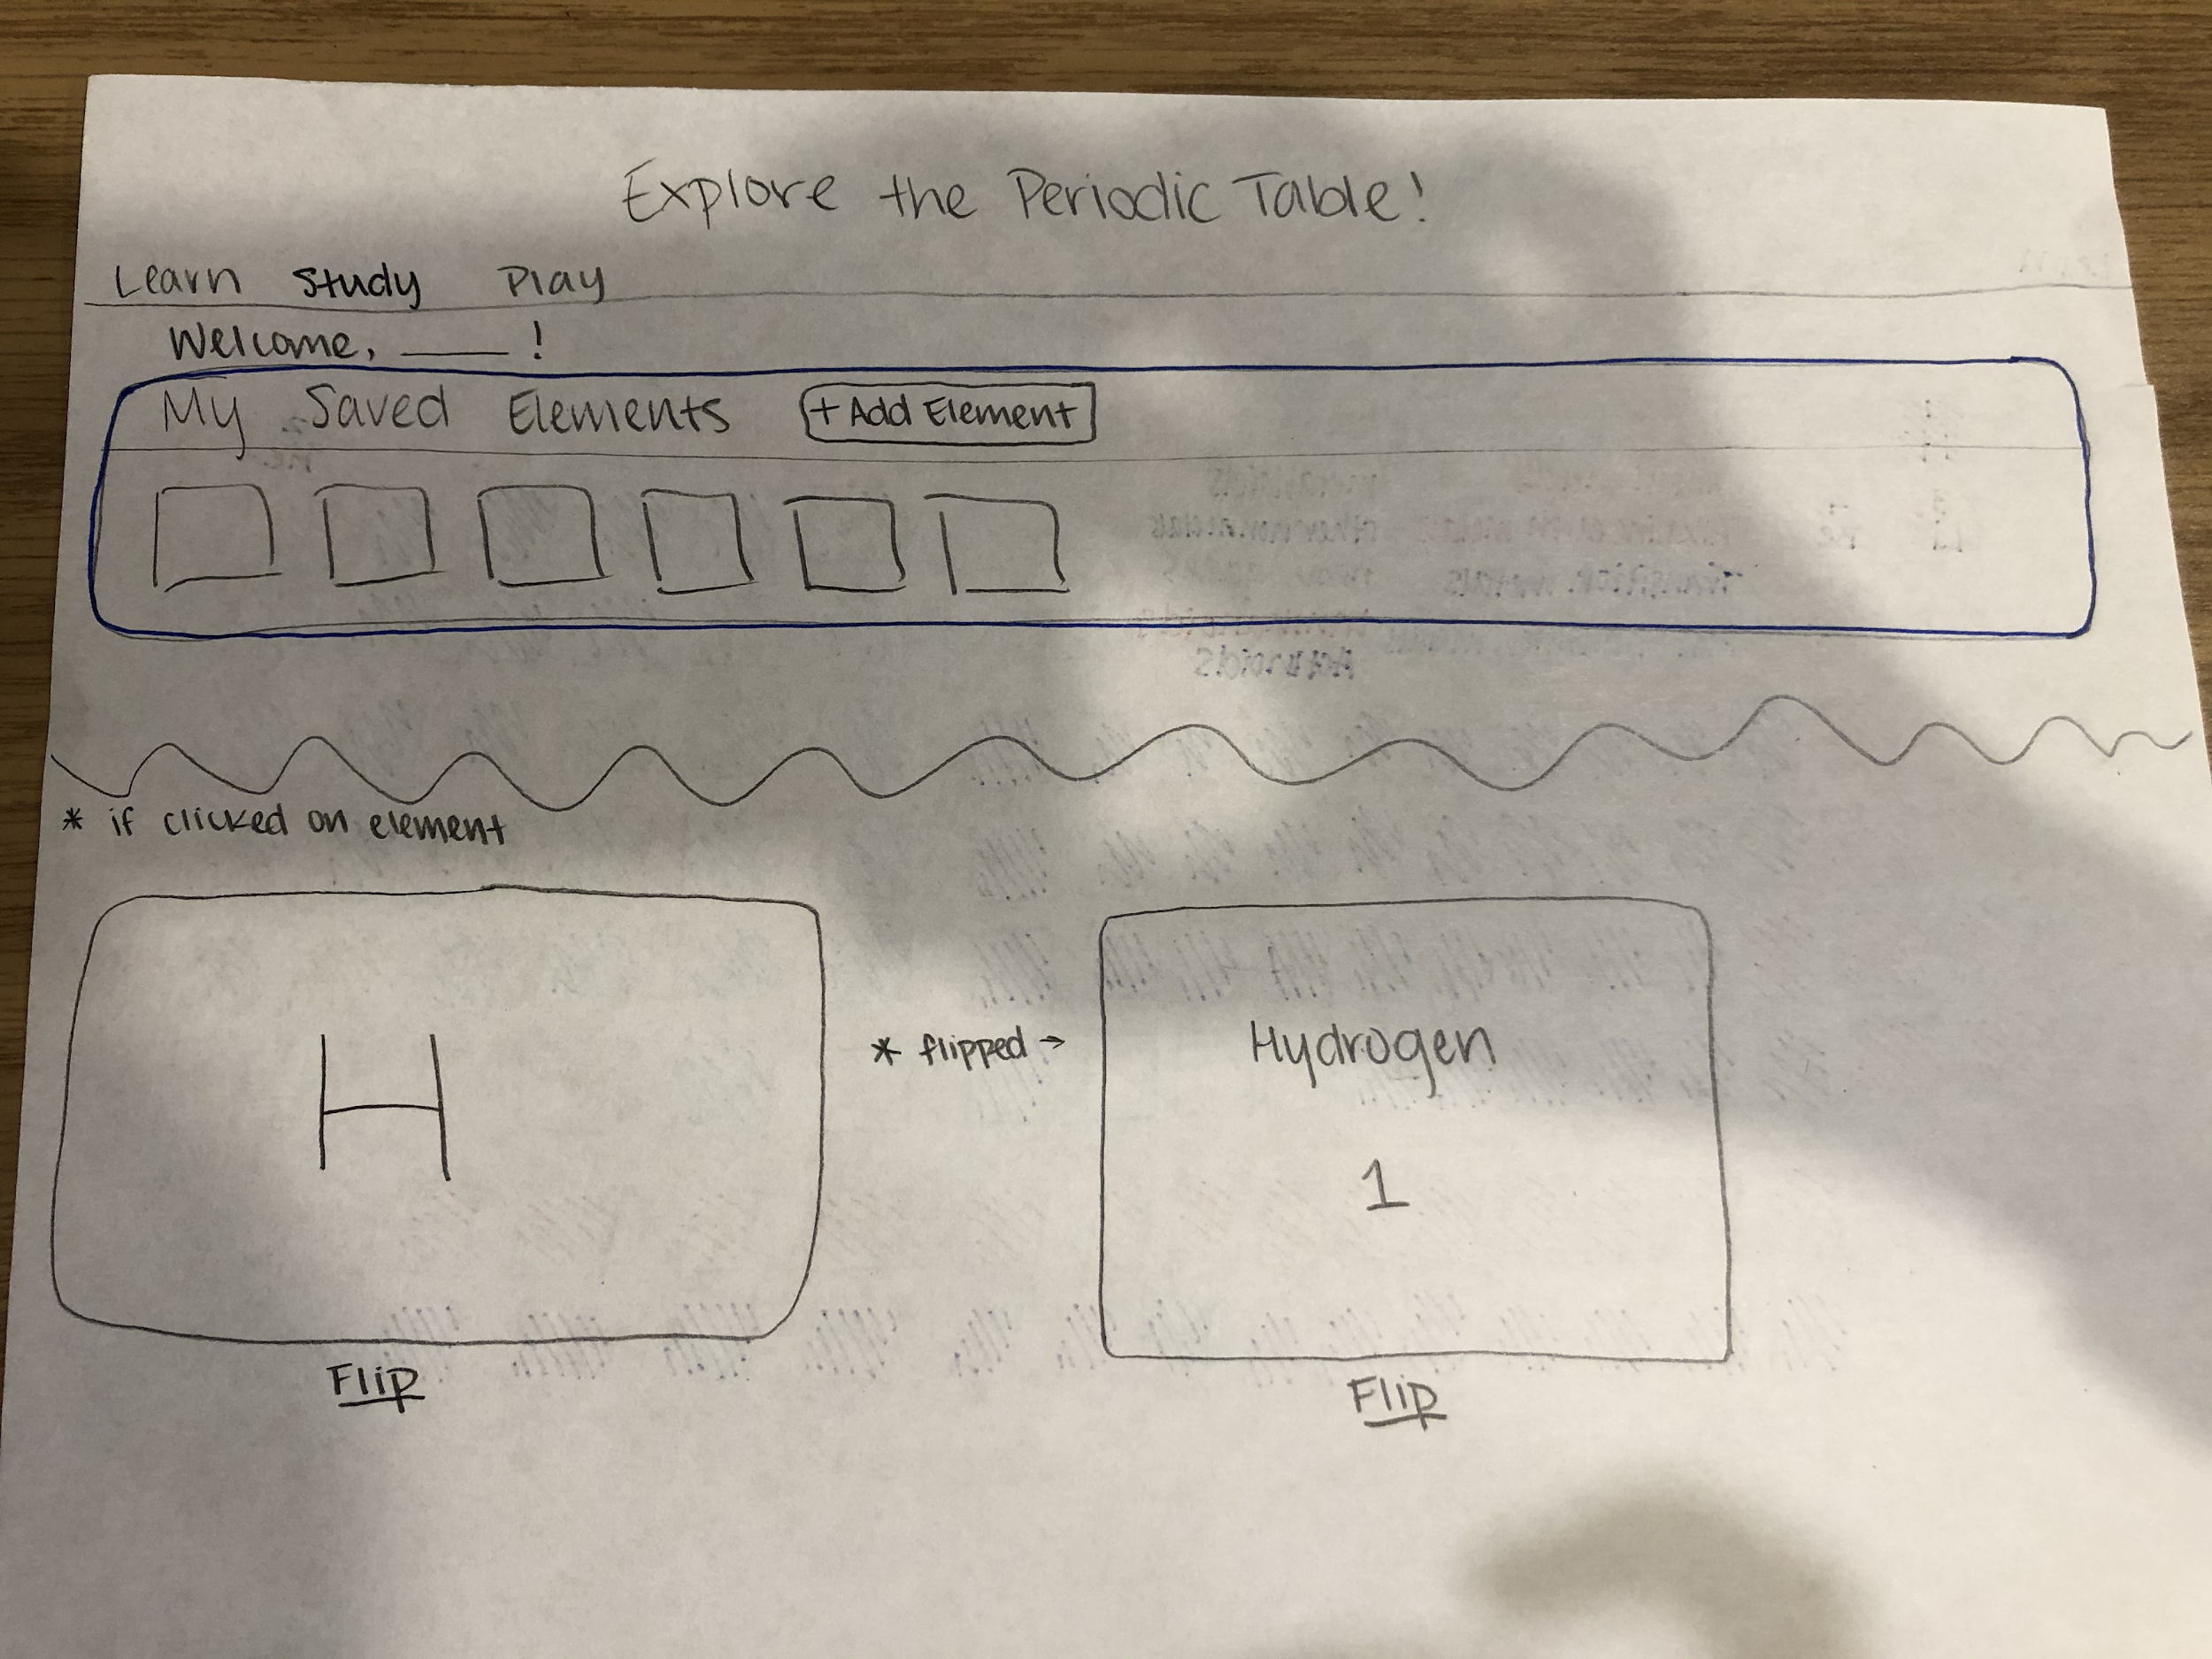 Explore the Periodic Table!
Learn Study Play
Welcome, ____ !
My Saved Elements + Add Element
* if clicked on element
H
* flipped →
Hydrogen
1
Flip
Flip